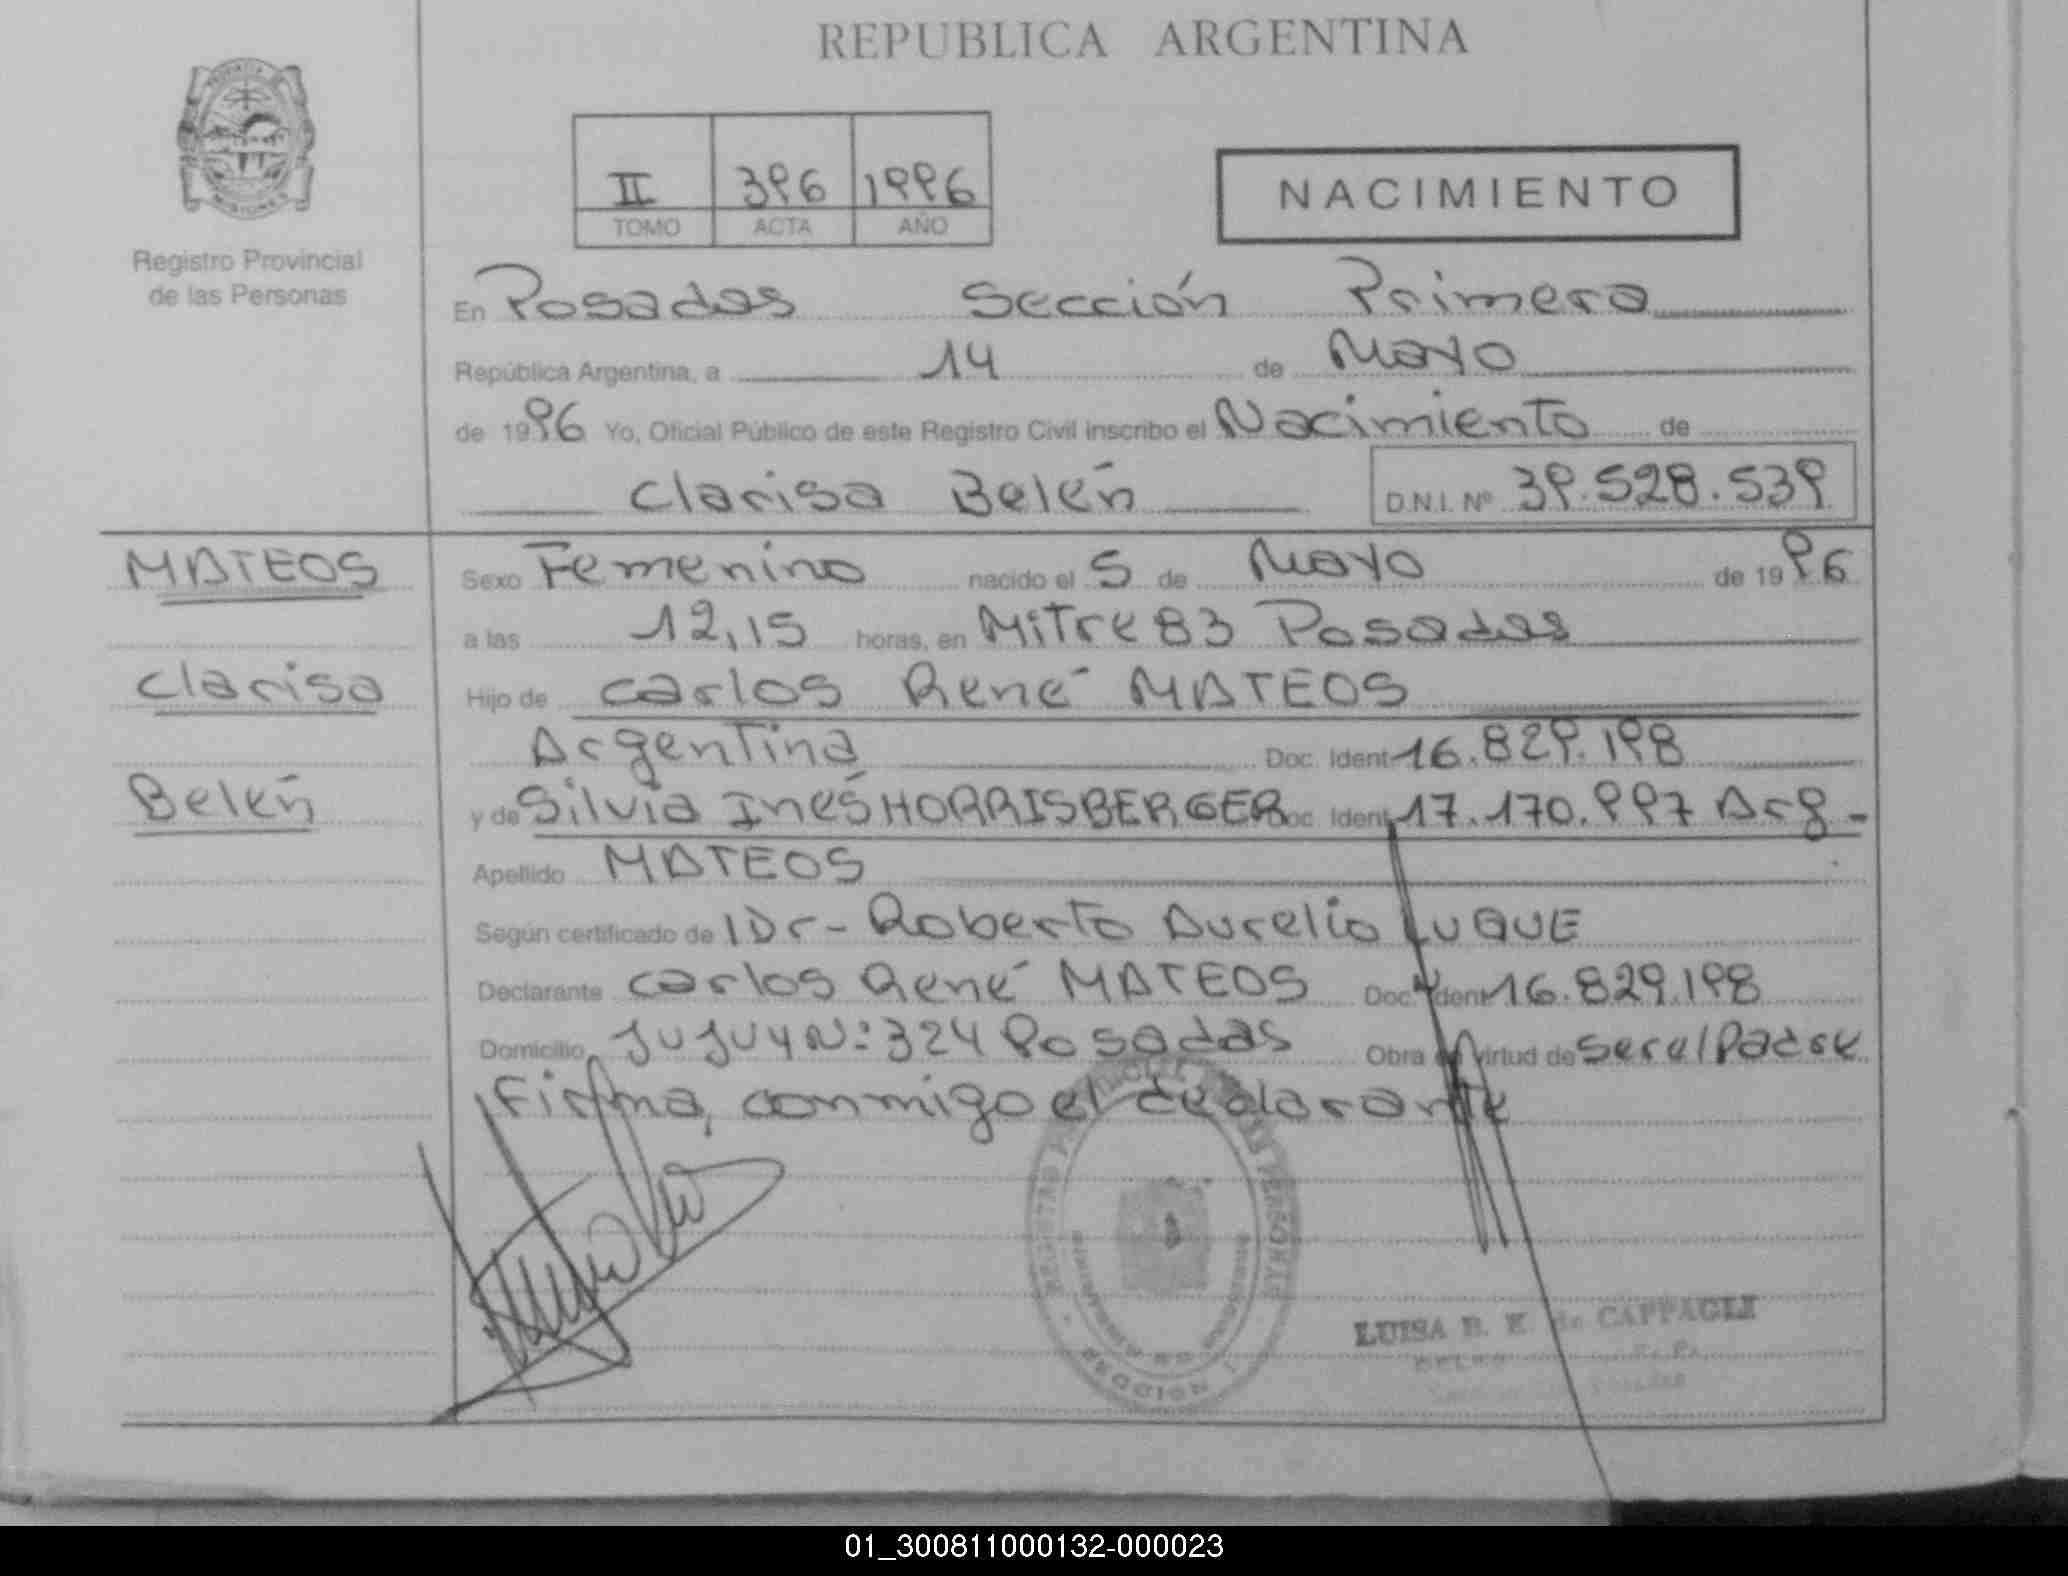 REPUBLICA ARGENTINA
II 396 1996
TOMO ACTA AÑO
NACIMIENTO
Registro Provincial
de las Personas
En Posadas Sección Primera
República Argentina, a 14 de Mayo
de 1996 Yo, Oficial Público de este Registro Civil inscribo el Nacimiento de
Clarisa Belén D.N.I. Nº 39.528.539
MATEOS
Clarisa
Belén
Sexo Femenino nacido el 5 de Mayo de 1996
a las 12,15 horas, en Mitre 83 Posadas
Hijo de Carlos René MATEOS
Argentina Doc. Ident 16.829.198
y de Silvia Inés HORRISBERGER Doc. Ident 17.170.997 Arg.-
Apellido MATEOS
Según certificado de Dr- Roberto Aurelio LUQUE
Declarante Carlos René MATEOS Doc. Ident 16.829.198
Domicilio JUJUY Nº: 324 Posadas Obra en virtud de ser el Padre
Firma, conmigo el declarante
SECCION 1
LUISA B. K. de CAPPAGLI
01_300811000132-000023